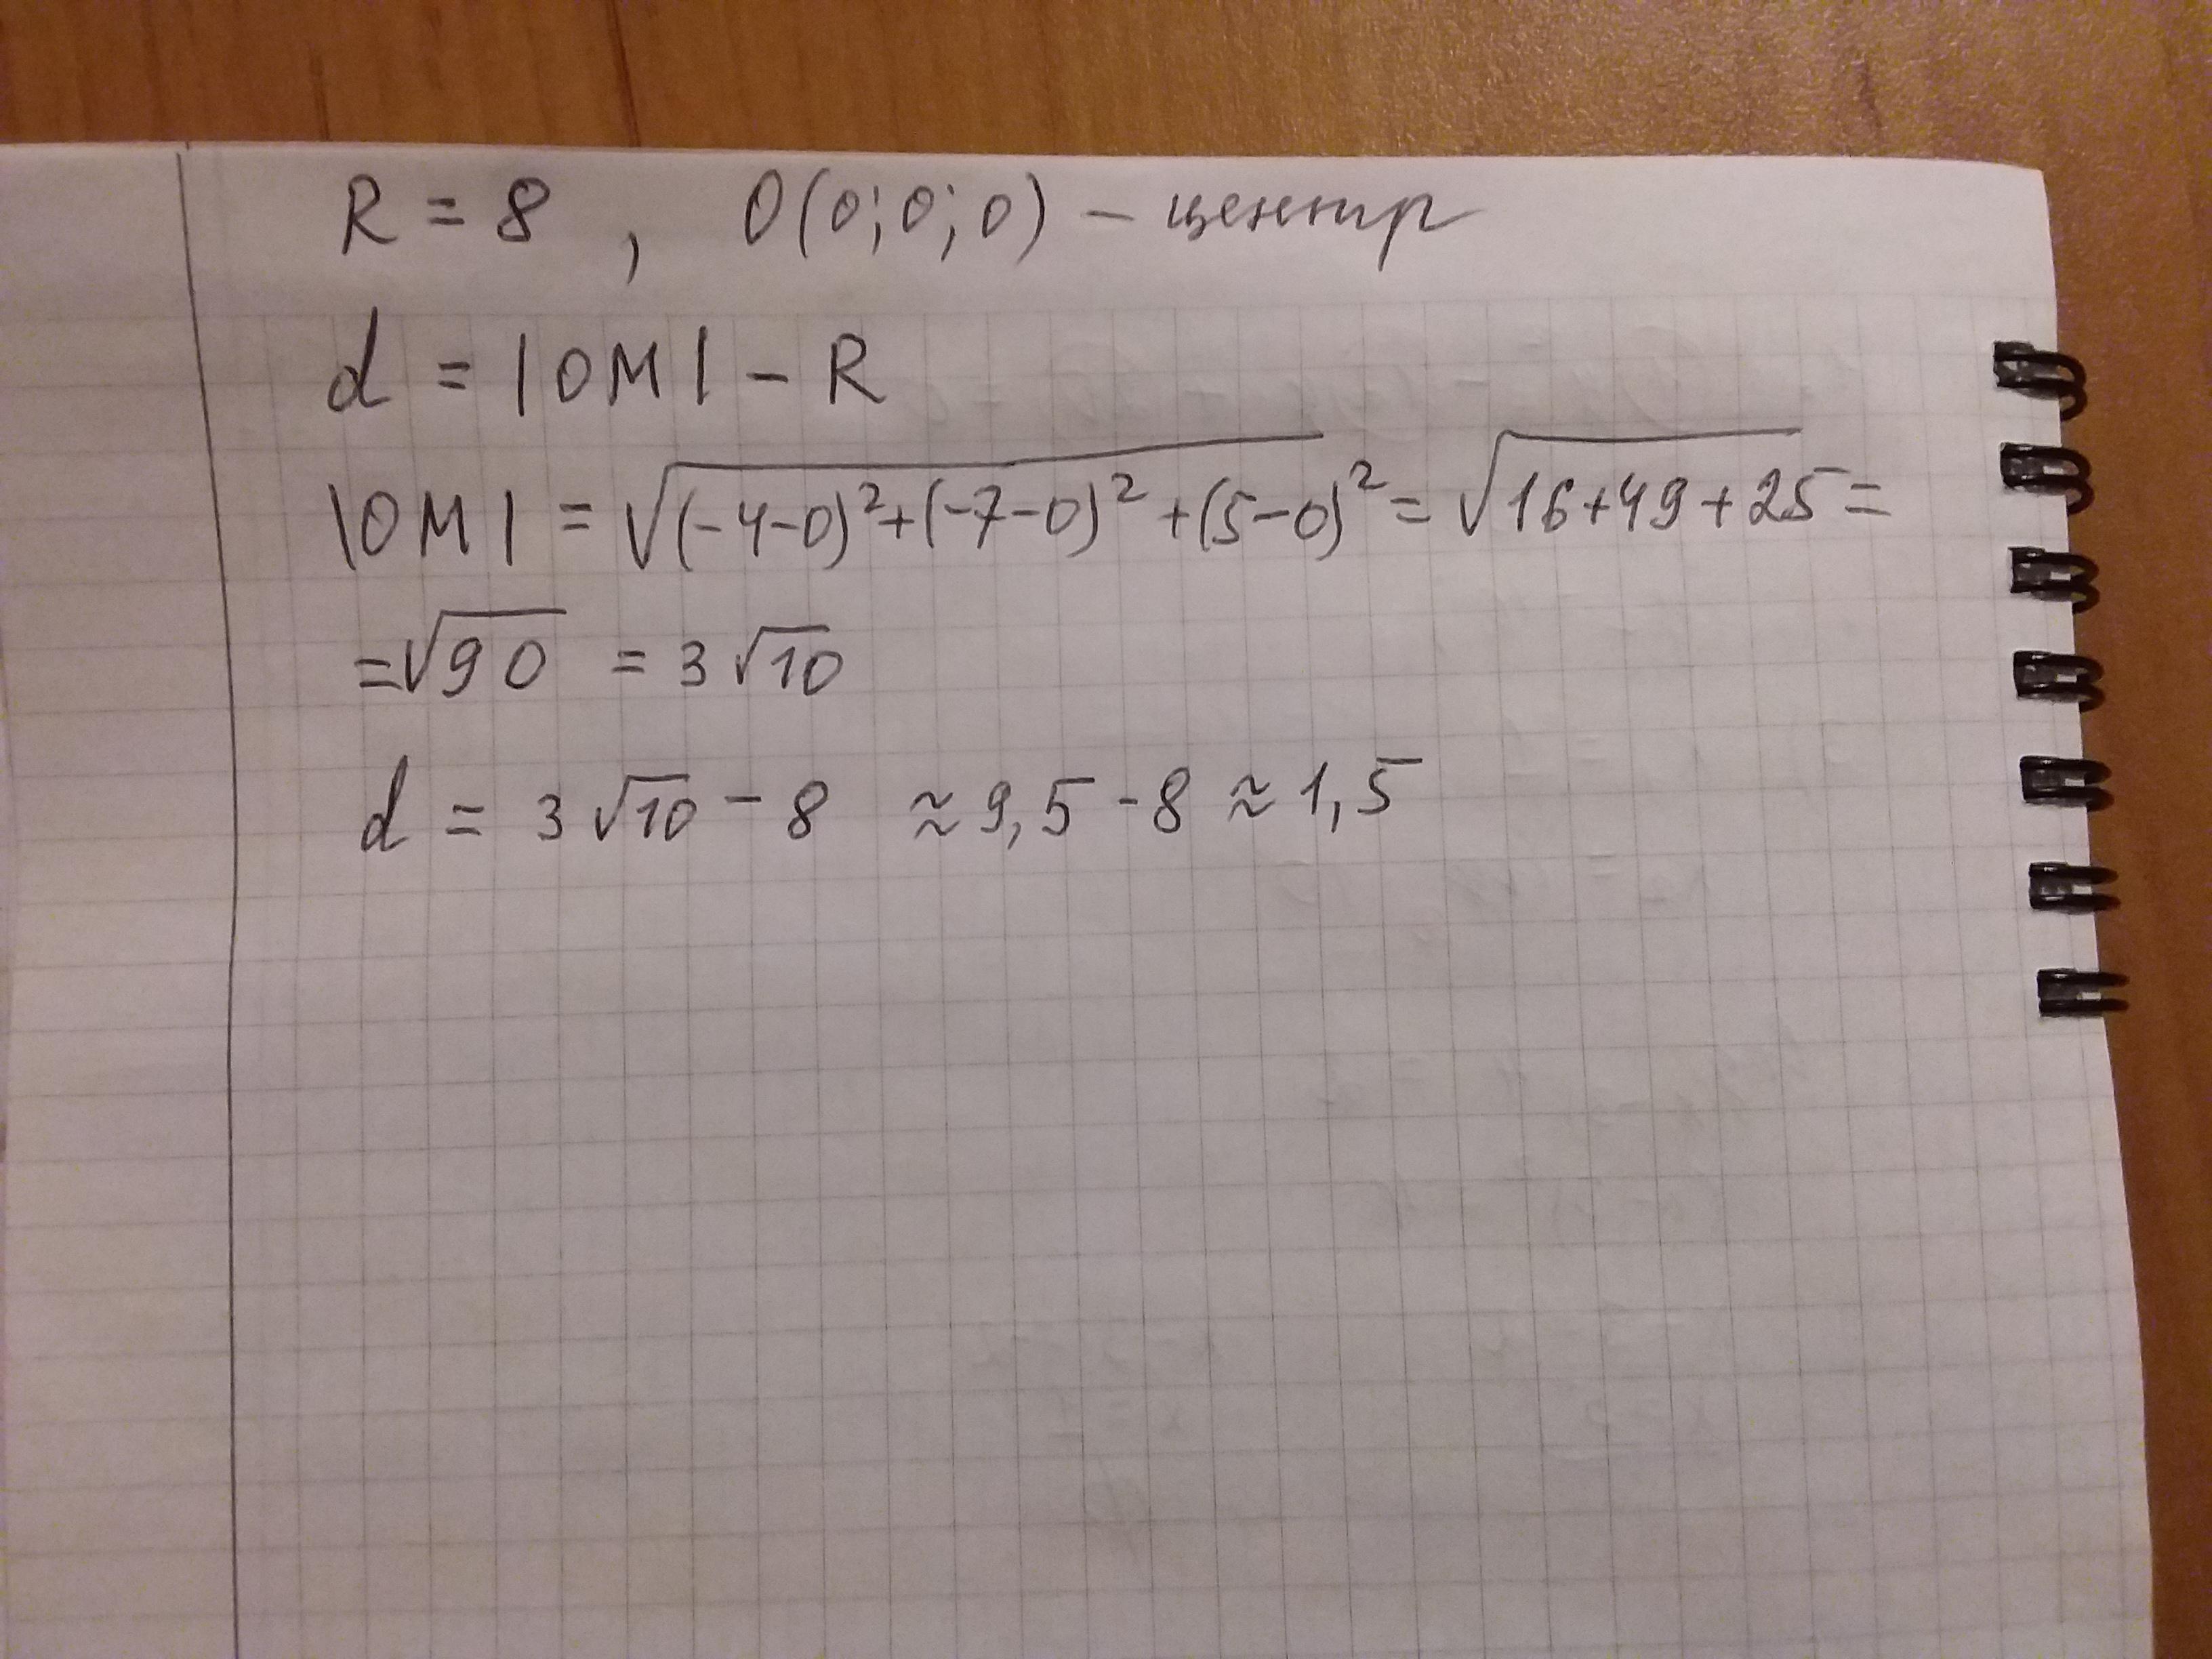 R = 8 , O(0;0;0) – центр
d = |OM| – R
|OM| = √(-4-0)²+(-7-0)²+(5-0)² = √16+49+25 =
= √90 = 3√10
d = 3√10 – 8 ≈ 9,5 - 8 ≈ 1,5